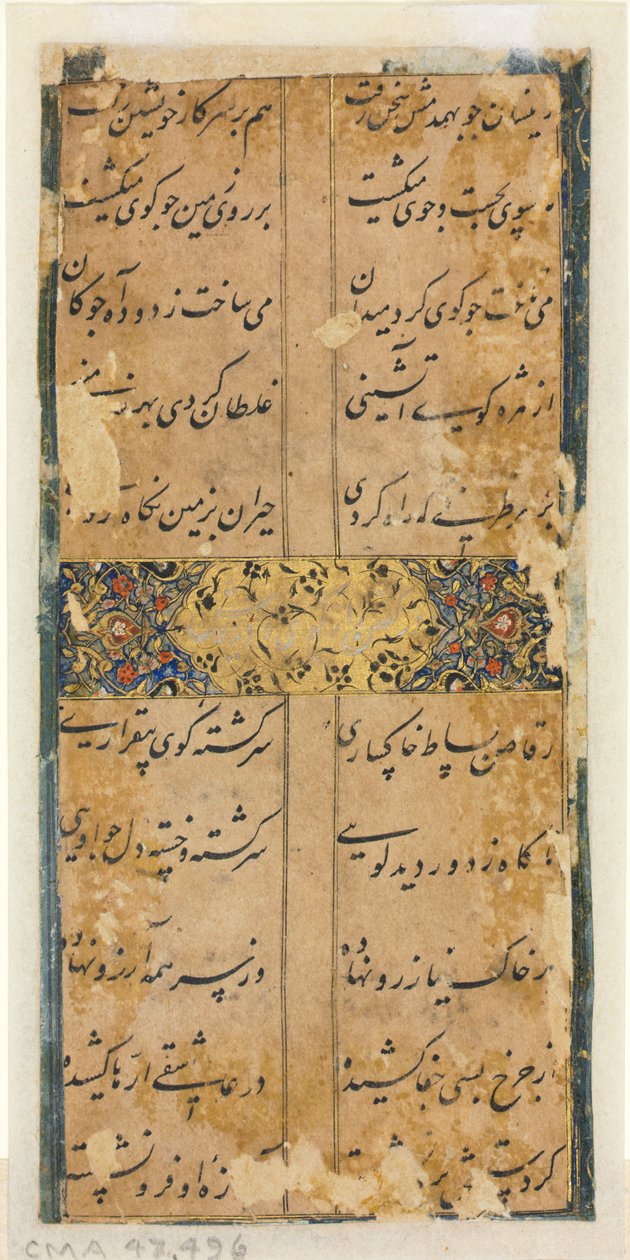 زینسان چو بهمدمش سخن رفت هم بر سر کار خویشتن رفت
سوی بجست و جوی میکشت بر روی زمین چو کوی میکشت
می تاخت چو کوی کرد میدان می ساخت ز دود آه چوکان
از مژه کویی آتشینی غلطان کردی بهر زمینی
بر هر طرفی که راه کردی حیران بزمین نکاه کردی
رقاص بساط خاکساری سرکشته کوی بیقراری
ناکاه ز دور دید کویی سرکشته و خسته دل چو اویی
بر خاک نیاز رو نهاده وز سر همه آرزو نهاده
از چرخ بسی جفا کشیده در عاشقی ارّها کشیده
کرد او فرو نشسته
CMA 47.496